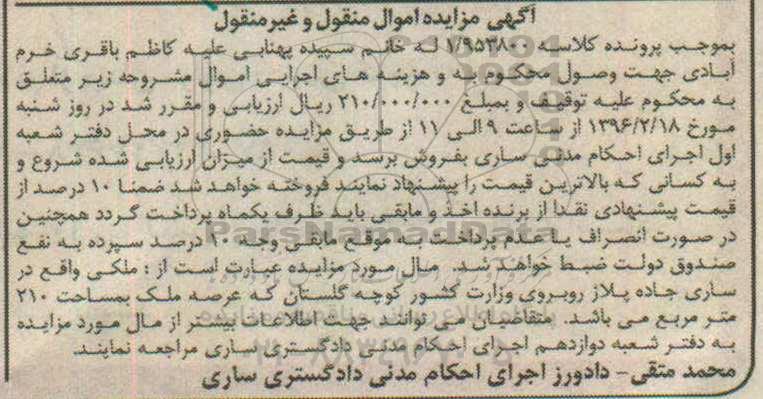 آگهی مزایده اموال منقول و غیرمنقول
بموجب پرونده کلاسه ۱/۹۵۳۸۰۰ له خانم سپیده پهنابی علیه کاظم باقری خرم
آبادی جهت وصول محکوم به و هزینه های اجرایی اموال مشروحه زیر متعلق
به محکوم علیه توقیف و بمبلغ ۲۱۰/۰۰۰/۰۰۰ ریال ارزیابی و مقرر شد در روز شنبه
مورخ ۱۳۹۶/۲/۱۸ از ساعت ۹ الی ۱۱ از طریق مزایده حضوری در محل دفتر شعبه
اول اجرای احکام مدنی ساری بفروش برسد و قیمت از میزان ارزیابی شده شروع و
به کسانی که بالاترین قیمت را پیشنهاد نمایند فروخته خواهد شد ضمنا ۱۰ درصد از
قیمت پیشنهادی نقدا از برنده اخذ و مابقی باید ظرف یکماه پرداخت گردد همچنین
در صورت انصراف یا عدم پرداخت به موقع مابقی وجه ۱۰ درصد سپرده به نفع
صندوق دولت ضبط خواهد شد. مال مورد مزایده عبارت است از : ملکی واقع در
ساری جاده پلاژ روبروی وزارت کشور کوچه گلستان که عرصه ملک بمساحت ۲۱۰
متر مربع می باشد. متقاضیان می توانند جهت اطلاعات بیشتر از مال مورد مزایده
به دفتر شعبه دوازدهم اجرای احکام مدنی دادگستری ساری مراجعه نمایند.
محمد متقی- دادورز اجرای احکام مدنی دادگستری ساری
ParsNamadData